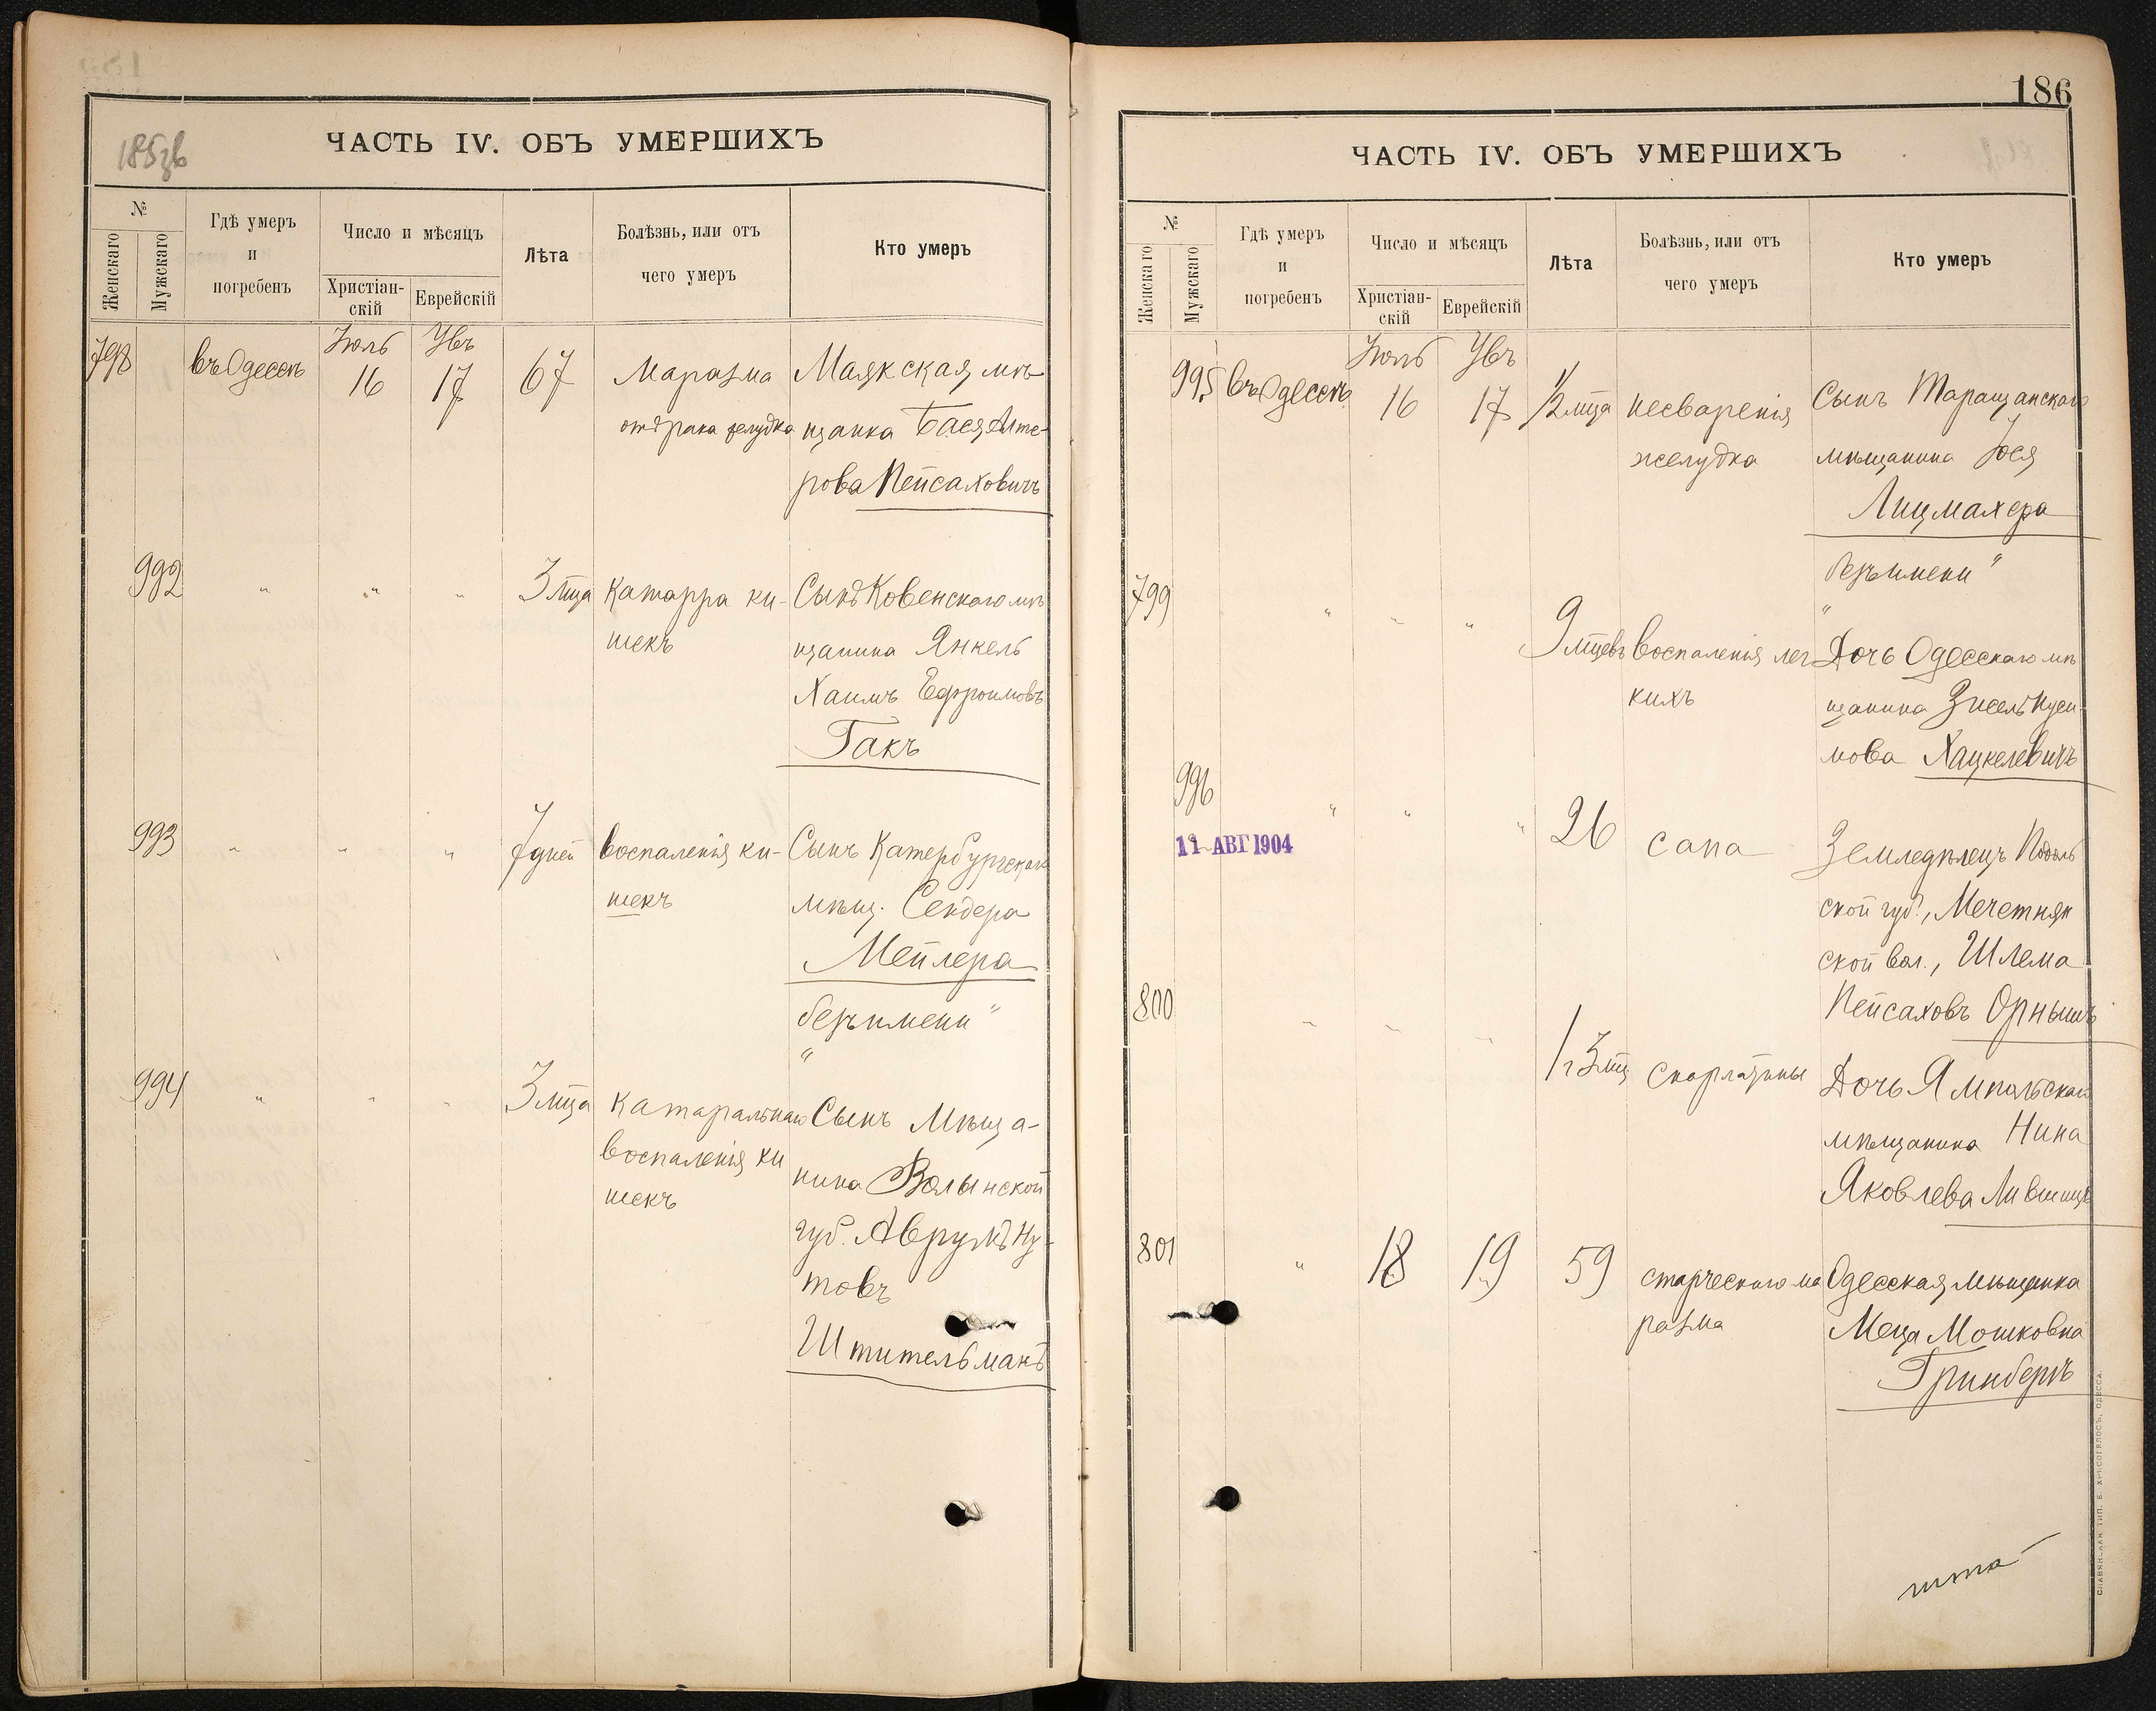 185зв
ЧАСТЬ IV. ОБЪ УМЕРШИХЪ
№
Женскаго
Мужскаго
Гдѣ умеръ
и
погребенъ
Число и мѣсяцъ
Христіан-
скій
Еврейскій
Лѣта
Болѣзнь, или отъ
чего умеръ
Кто умеръ
798 въ Одессѣ Іюль 16 17 67 Маразма Маякская мѣ-
отъ рака желудка щанка Бася Алте-
рова Пейсаховичъ
992 " " " 3 мца Катарра ки- Сынъ Ковенскаго мѣ
шекъ щанина Янкель
Хаимъ Ефроимовъ
Гакъ
993 " " " 7 дней воспаленія ки- Сынъ Катербургскаго
шекъ мѣщ. Сендера
Мейлера
безъ имени "
"
994 " " " 3 мца катаральнаго Сынъ Мѣща-
воспаленія ки нина Волынской
шекъ губ. Аврумъ Ну-
товъ
Штительманъ
186
ЧАСТЬ IV. ОБЪ УМЕРШИХЪ
№
Женскаго
Мужскаго
Гдѣ умеръ
и
погребенъ
Число и мѣсяцъ
Христіан-
скій
Еврейскій
Лѣта
Болѣзнь, или отъ
чего умеръ
Кто умеръ
995 въ Одессѣ Іюль 16 17 1/2 мца несваренія Сынъ Таращанскаго
желудка мѣщанина Іося
Лицмахера
безъ имени "
"
799 " " " 9 мцевъ воспаленія лег Дочь Одесскаго мѣ
кихъ щанина Зисель Нуси-
мова Хацкелевичъ
996 " " " 26 сапа Земледѣлецъ Подоль
11 АВГ 1904
ской губ., Мечетняк
ской вол., Шлема
Пейсаховъ Орнышъ
800 " " " 1 г 3 мц Скарлатины Дочь Ямпольскаго
мѣщанина Нина
Яковлева Лившицъ
801 " 18 19 59 старческаго ма Одесская мѣщанка
разма Меца Мошковна
Гринбергъ
СЛАВЯНСКАЯ ТИП. Е. ХРИСОГЕЛОСЪ, ОДЕССА.